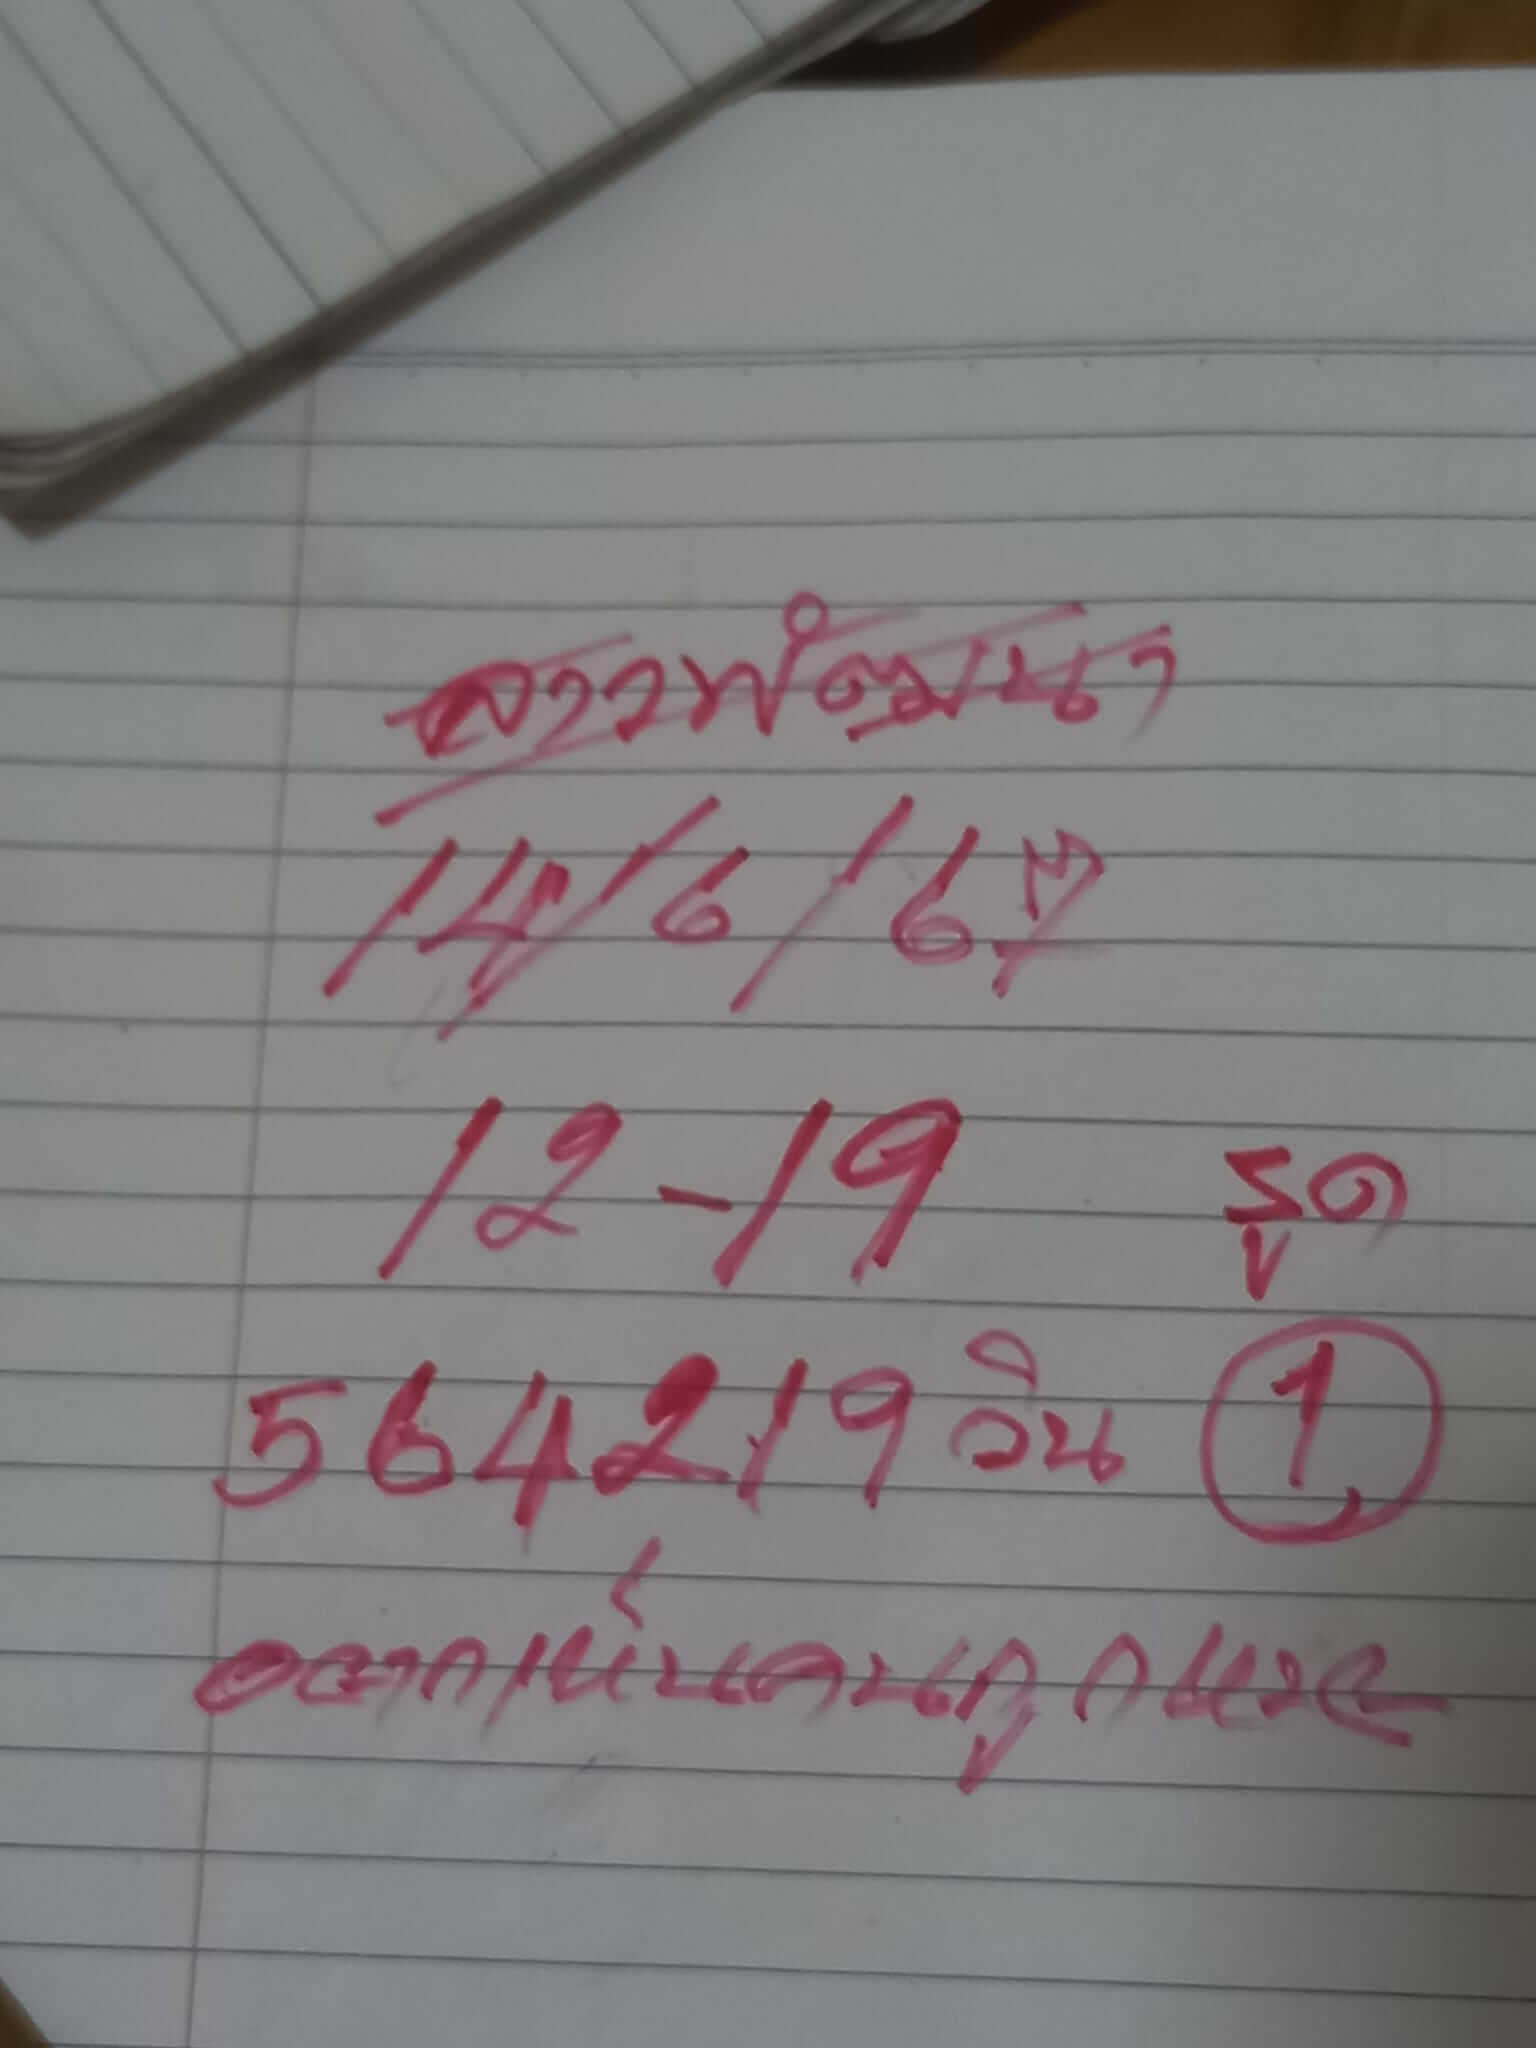 ลาวพัฒนา
14/6/67
12-19 รูด
564219 วิน 1
อยากเห็นคนถูกหวย